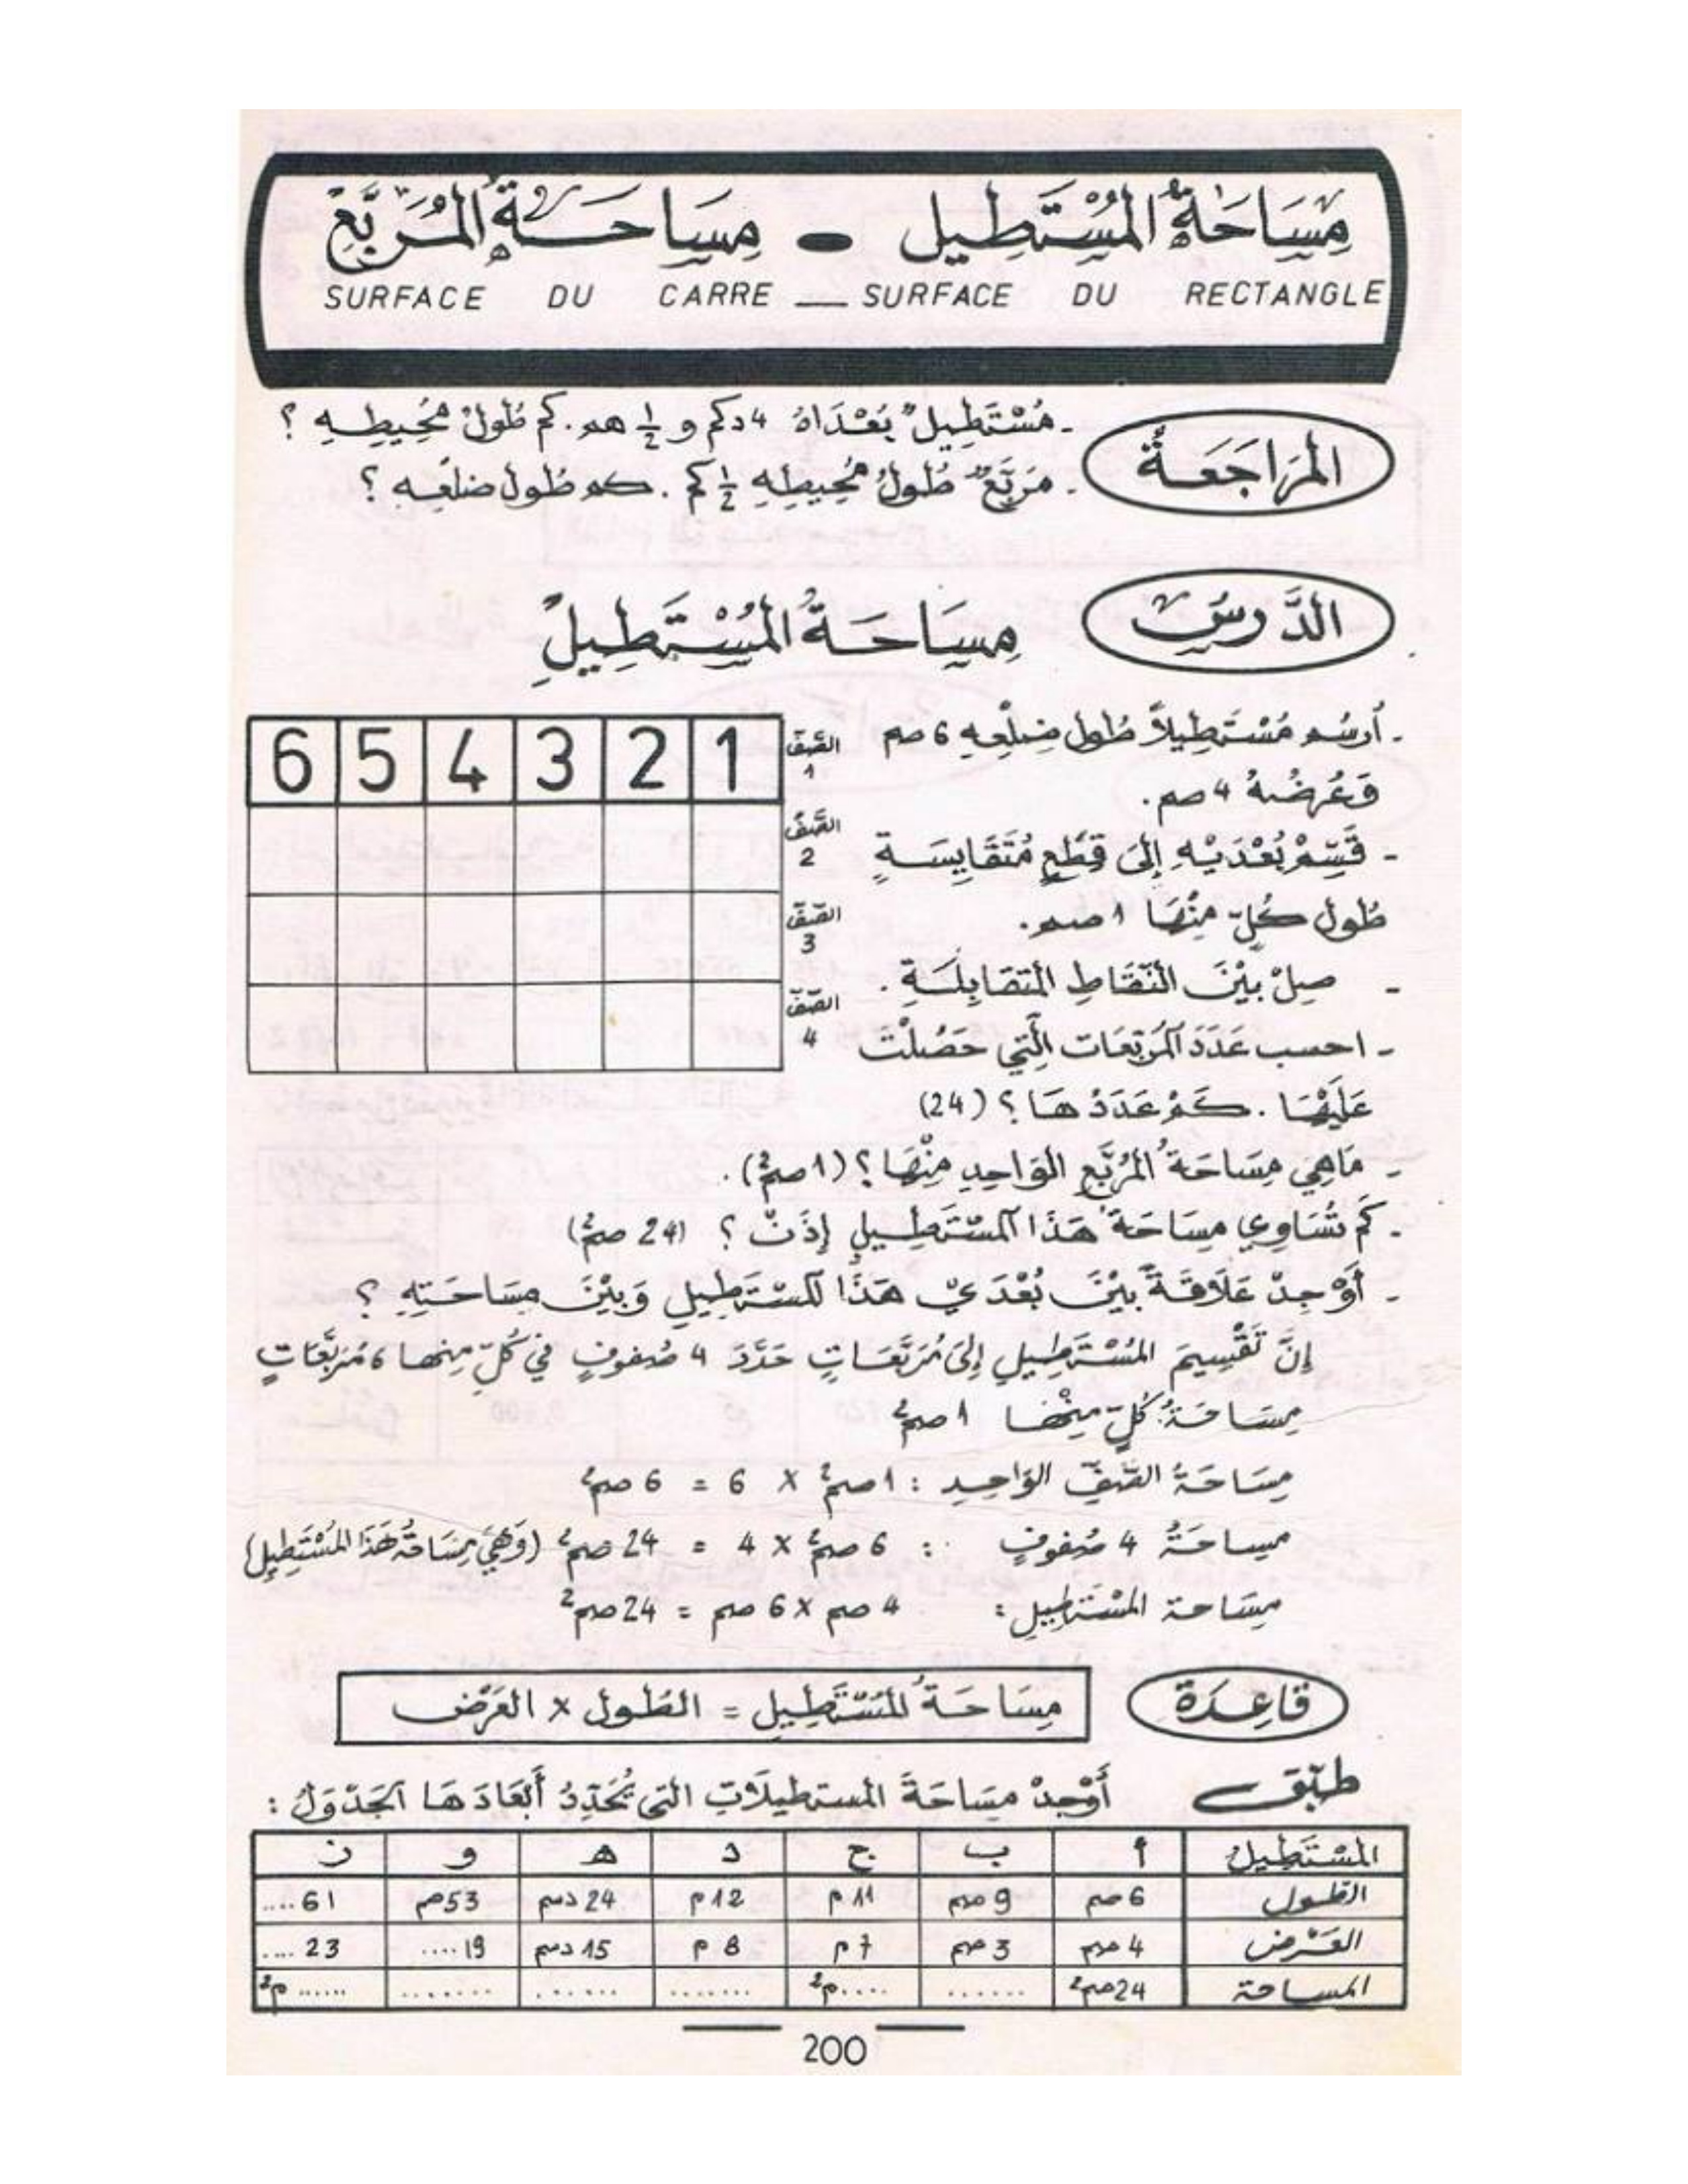 مِسَاحَةُ الْمُسْتَطِيلِ - مِسَاحَةُ الْمُرَبَّعِ
SURFACE DU CARRE — SURFACE DU RECTANGLE
الْمُرَاجَعَةُ
- مُسْتَطِيلٌ بُعْدَاهُ 4 دكم و 1/2 هم. كم طُولُ مُحِيطِهِ ؟
- مُرَبَّعٌ طُولُ مُحِيطِهِ 1/2 كم. كم طُول ضلعِه ؟
الدَّرسُ
مِسَاحَةُ الْمُسْتَطِيلِ
- أُرسُم مُسْتَطِيلاً طُول ضِلْعِهِ 6 صم
وَعُرضُهُ 4 صم.
- قَسِّمْ بُعْدَيْهِ إِلَى قِطَعٍ مُتَقَايِسَةٍ
طُول كُلّ مِنْهَا 1 صم.
- صِلْ بَيْنَ النِّقَاطِ الْمُتَقَابِلَةِ.
- احسب عَدَدَ الْمُرَبَّعَات الَّتِي حَصُلْتَ
عَلَيْهَا. كَمْ عَدَدُهَا ؟ (24)
6 5 4 3 2 1 الصَّفّ 1
الصَّفّ 2
الصَّفّ 3
الصَّفّ 4
- مَاهِيَ مِسَاحَةُ الْمُرَبَّعِ الْوَاحِدِ مِنْهَا ؟ (1 صم²).
- كَمْ تُسَاوِي مِسَاحَةُ هَذَا الْمسْتَطِيلِ إِذَنْ ؟ (24 صم²)
- أَوْجِدْ عَلَاقَةً بَيْنَ بُعْدَيْ هَذَا الْمسْتَطِيلِ وَبَيْنَ مِسَاحَتِهِ ؟
إِنَّ تَقْسِيمَ الْمُسْتَطِيلِ إِلَى مُرَبَّعَاتٍ حَدَّدَ 4 صُفوفٍ في كُلّ مِنها 6 مُرَبَّعَاتٍ
مِسَاحَةُ كُلّ مِنْهَا 1 صم²
مِسَاحَةُ الصَّفِّ الوَاحِدِ : 1 صم² × 6 = 6 صم²
مِساحَةُ 4 صُفوفٍ : 6 صم² × 4 = 24 صم² (وَهِيَ مِسَاحَةُ هَذَا الْمُسْتَطِيلِ)
مِسَاحة الْمُسْتَطِيلِ : 4 صم × 6 صم = 24 صم²
قَاعِدَة
مِسَاحَةُ الْمُسْتَطِيلِ = الطُول × العَرْض
طبّق أَوْجِدْ مِسَاحَةَ المستطيلَاتِ التي تُحَدِّدُ أَبْعَادَهَا الْجَدْوَلُ :
الْمُسْتَطِيلُ أ ب ج د ه و ز
الطّول 6 صم 9 صم 11 م 12 م 24 دسم 53 م 61 ....
العَرْض 4 صم 3 صم 7 م 8 م 15 دسم 19 .... 23 ....
المساحة 24 صم² ...... ....م² ....... ...... ....... ......م²
200